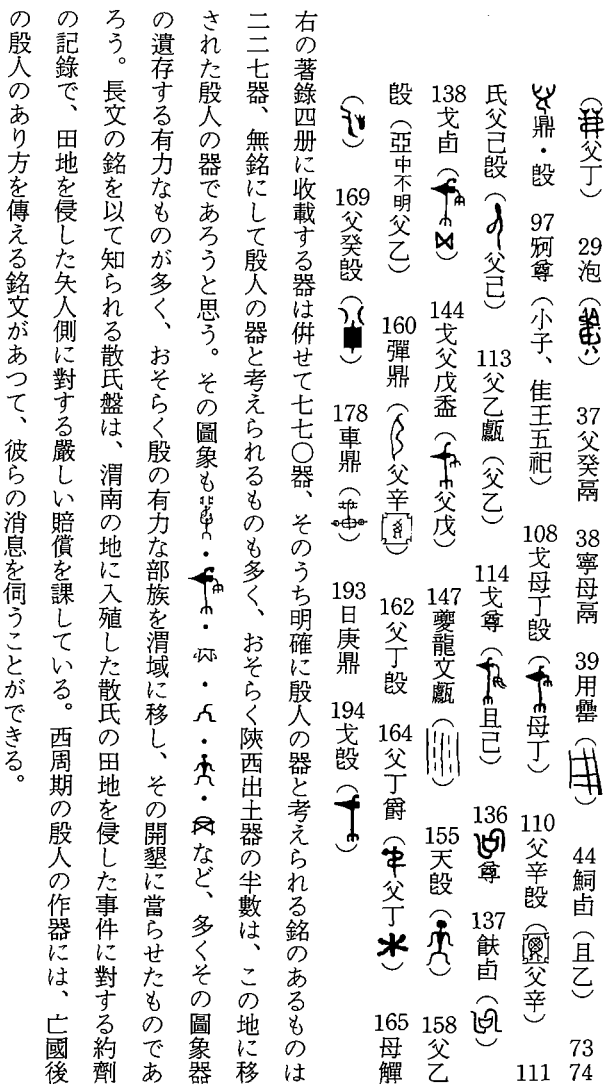 （父丁）　29泡（）　37父癸鬲　38寧母鬲　39用罍（）　44鮦卣（且乙）　73　74
鼎・𣪘　97㝬尊（小子、隹王五祀）　108戈母丁𣪘（母丁）　110父辛𣪘（父辛）　111
氏父己𣪘（父己）　113父乙甗（父乙）　114戈尊（且己）　136尊　137卣（）
138戈卣（）　144戈父戊盉（父戊）　147夔龍文甗（）　155天𣪘（）　158父乙
𣪘（亞中不明父乙）　160彈鼎（父辛）　162父丁𣪘　164父丁爵（父丁）　165母觶
（）　169父癸𣪘（）　178車鼎（）　193日庚鼎　194戈𣪘（）
右の著錄四册に收載する器は倂せて七七〇器、そのうち明確に殷人の器と考えられる銘のあるものは
二二七器、無銘にして殷人の器と考えられるものも多く、おそらく陝西出土器の半數は、この地に移
された殷人の器であろうと思う。その圖象も・・・・・など、多くその圖象器
の遺存する有力なものが多く、おそらく殷の有力な部族を渭域に移し、その開墾に當らせたものであ
ろう。長文の銘を以て知られる散氏盤は、渭南の地に入殖した散氏の田地を侵した事件に對する約劑
の記錄で、田地を侵した夨人側に對する嚴しい賠償を課している。西周期の殷人の作器には、亡國後
の殷人のあり方を傳える銘文があつて、彼らの消息を伺うことができる。